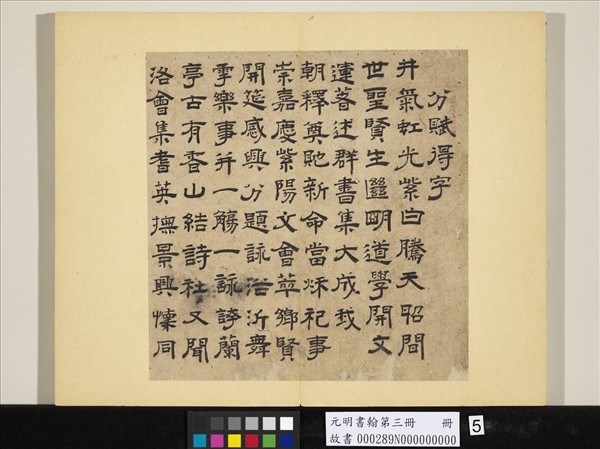 分賦得字
井氣虹光紫白騰天昭間
世聖賢生繼明道學開文
運著述群書集大成我
朝釋奠貤新命當秋祀事
崇嘉慶紫陽文會萃鄉賢
開筵感興分題詠浴沂舞
雩樂事并一觴一詠誇蘭
亭古有香山結詩社又聞
洛會集耆英撫景興懷同
元明書翰第三冊 冊
故書 000289N000000000
5